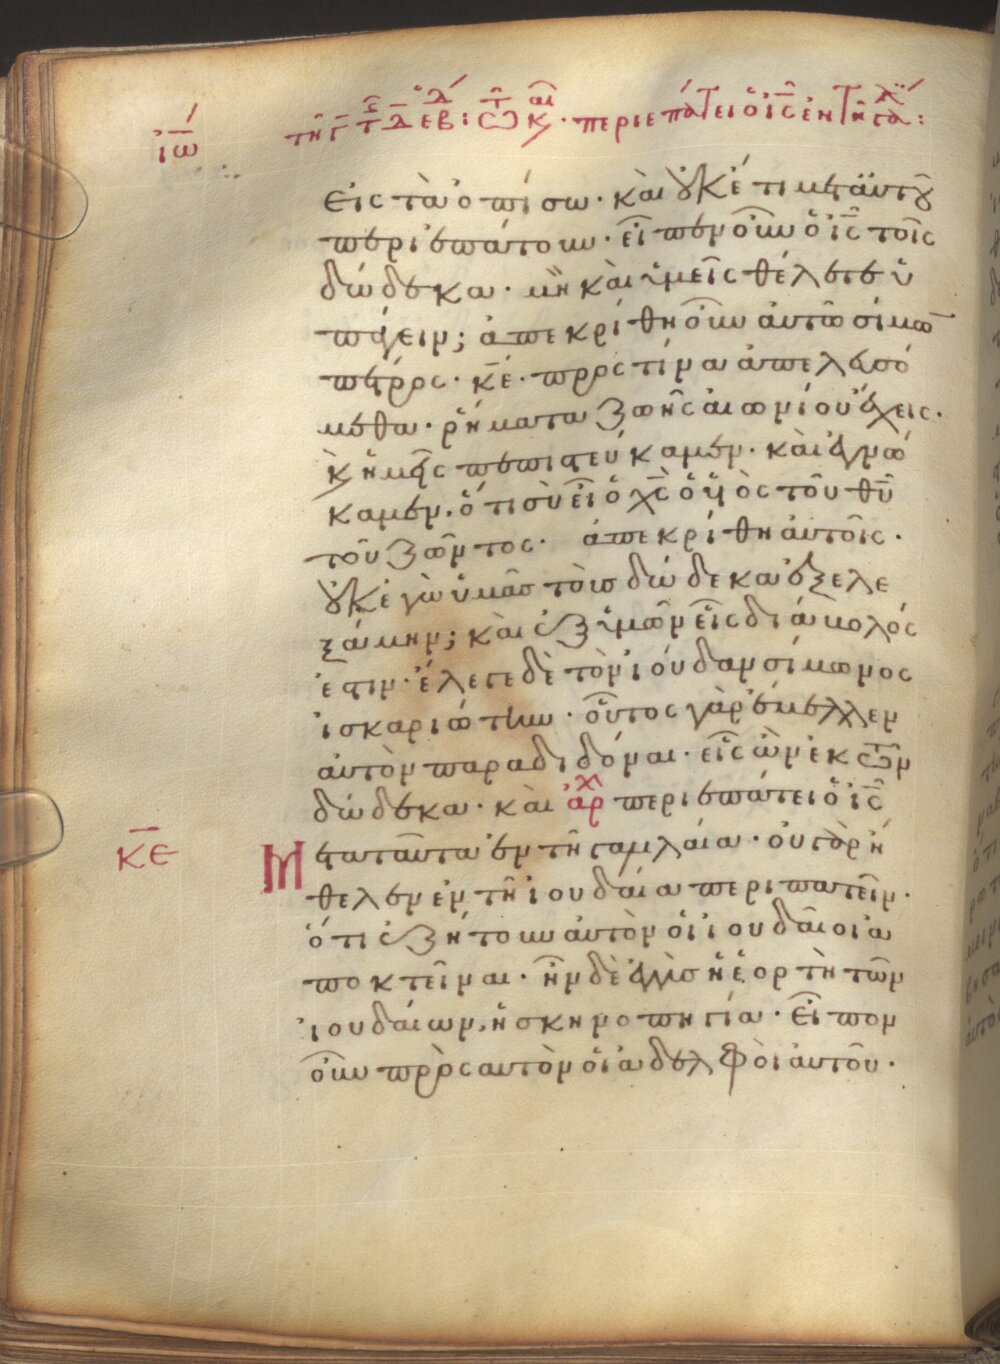 ἰω
τῆ γ τ δ εβ: τῶ κ. περιεπάτει ὁ ις ἐν τῆ γα:
εἰς τὰ ὀπίσω· καὶ οὐκέτι μετ αὐτοῦ
περιεπάτουν· εἶπεν οὖν ὁ ις τοῖς
δώδεκα· μὴ καὶ ὑμεῖς θέλετε ὑ
πάγειν; ἀπεκρίθη οὖν αὐτῶ σίμων
πέτρος· κε· πρὸς τίνα ἀπελευσό
μεθα· ῥήματα ζωῆς αἰωνίου ἔχεις·
κ ἡμεῖς πεπιστεύκαμεν· καὶ ἐγνώ
καμεν· ὅτι σὺ εἶ ὁ χς ὁ υἱὸς τοῦ θυ
τοῦ ζῶντος· ἀπεκρίθη αὐτοῖς·
οὐκ ἐγὼ ὑμᾶς τοὺς δώδεκα ἐξελε
ξάμην; καὶ ἐξ ὑμῶν εἷς διάβολός
ἐστιν· ἔλεγε δὲ τὸν ἰούδαν σίμωνος
ἰσκαριώτην· οὗτος γὰρ ἔμελλεν
αὐτὸν παραδιδόναι· εἷς ὢν ἐκ τῶν
δώδεκα· καὶ ἀρχ περιεπάτει ὁ ις
κε
Μετα ταῦτα ἐν τῆ γαλιλαία· οὐ γὰρ ἤ
θελεν ἐν τῆ ἰουδαία περιπατεῖν·
ὅτι ἐζήτουν αὐτὸν οἱ ἰουδαῖοι ἀ
ποκτεῖναι· ἦν δὲ ἐγγὺς ἡ ἑορτὴ τῶν
ἰουδαίων· ἡ σκηνοπηγία· εἶπον
οὖν πρὸς αυτὸν οἱ ἀδελφοὶ αὐτοῦ·